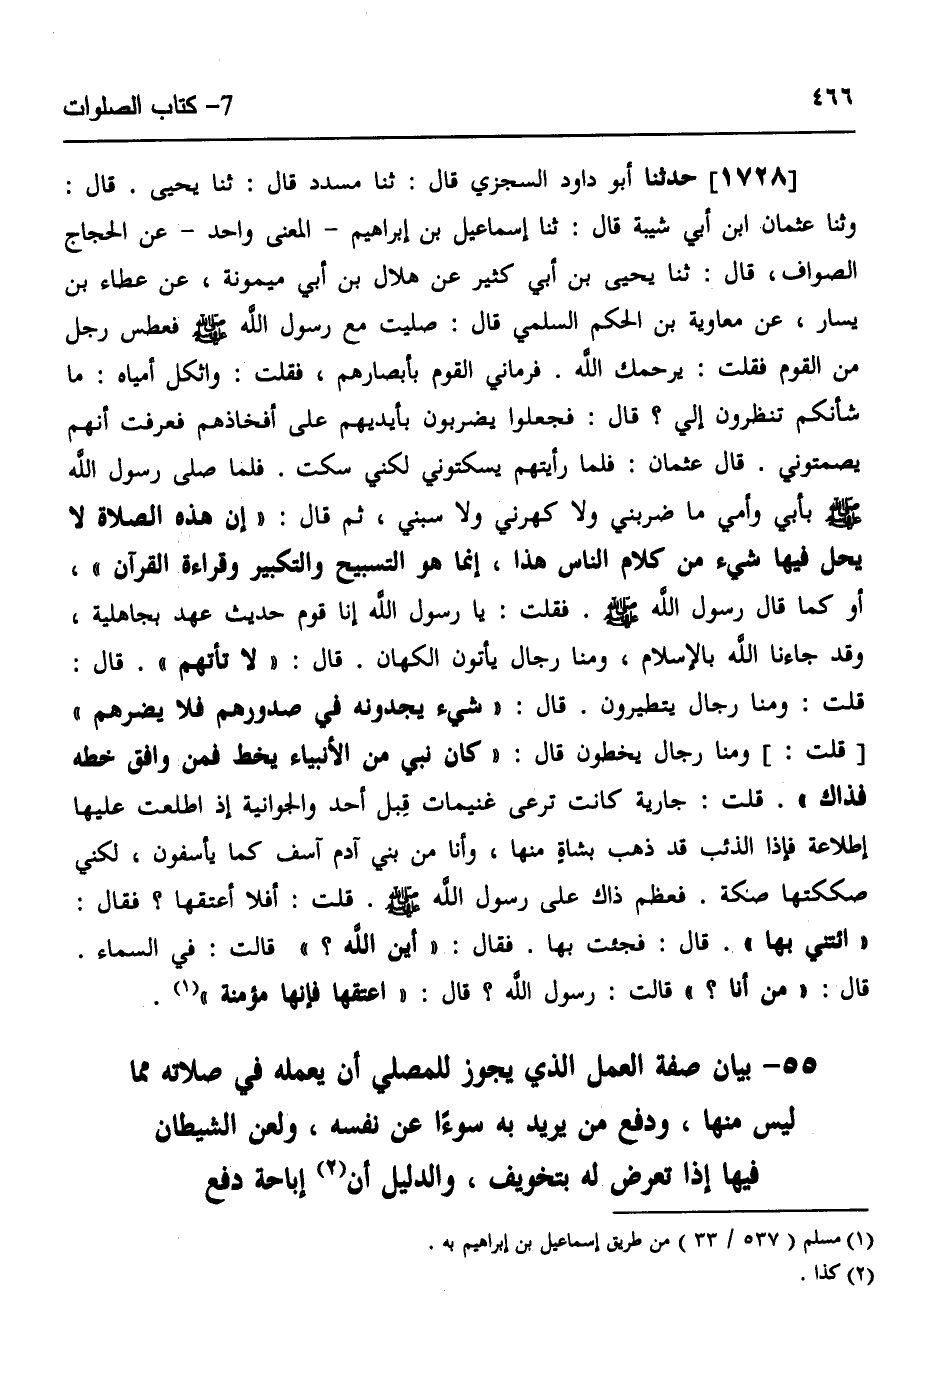 ٤٦٦
7- كتاب الصلوات
[١٧٢٨] حدثنا أبو داود السجزي قال : ثنا مسدد قال : ثنا يحيى . قال :
وثنا عثمان ابن أبي شيبة قال : ثنا إسماعيل بن إبراهيم - المعنى واحد - عن الحجاج
الصواف، قال : ثنا يحيى بن أبي كثير عن هلال بن أبي ميمونة ، عن عطاء بن
يسار ، عن معاوية بن الحكم السلمي قال : صليت مع رسول اللَّه ﷺ فعطس رجل
من القوم فقلت : يرحمك اللَّه . فرماني القوم بأبصارهم ، فقلت : واثكل أمياه : ما
شأنكم تنظرون إلي ؟ قال : فجعلوا يضربون بأيديهم على أفخاذهم فعرفت أنهم
يصمتوني . قال عثمان : فلما رأيتهم يسكتوني لكني سكت . فلما صلى رسول اللَّه
ﷺ بأبي وأمي ما ضربني ولا كهرني ولا سبني ، ثم قال : « إن هذه الصلاة لا
يحل فيها شيء من كلام الناس هذا ، إنما هو التسبيح والتكبير وقراءة القرآن » ،
أو كما قال رسول اللَّه ﷺ . فقلت : يا رسول اللَّه إنا قوم حديث عهد بجاهلية ،
وقد جاءنا اللَّه بالإسلام ، ومنا رجال يأتون الكهان . قال : « لا تأتهم » . قال :
قلت : ومنا رجال يتطيرون . قال : « شيء يجدونه في صدورهم فلا يضرهم »
[ قلت : ] ومنا رجال يخطون قال : « كان نبي من الأنبياء يخط فمن وافق خطه
فذاك » . قلت : جارية كانت ترعى غنيمات قِبل أحد والجوانية إذ اطلعت عليها
إطلاعة فإذا الذئب قد ذهب بشاةٍ منها ، وأنا من بني آدم آسف كما يأسفون ، لكني
صككتها صنكة . فعظم ذاك على رسول اللَّه ﷺ . قلت : أفلا أعتقها ؟ فقال :
« ائتني بها » . قال : فجئت بها . فقال : « أين اللَّه ؟ » قالت : في السماء .
قال : « من أنا ؟ » قالت : رسول اللَّه ؟ قال : « اعتقها فإنها مؤمنة »(١) .
٥٥- بيان صفة العمل الذي يجوز للمصلي أن يعمله في صلاته مما
ليس منها ، ودفع من يريد به سوءًا عن نفسه ، ولعن الشيطان
فيها إذا تعرض له بتخويف ، والدليل أن(٢) إباحة دفع
(١) مسلم ( ٥٣٧ / ٣٣ ) من طريق إسماعيل بن إبراهيم به .
(٢) كذا .